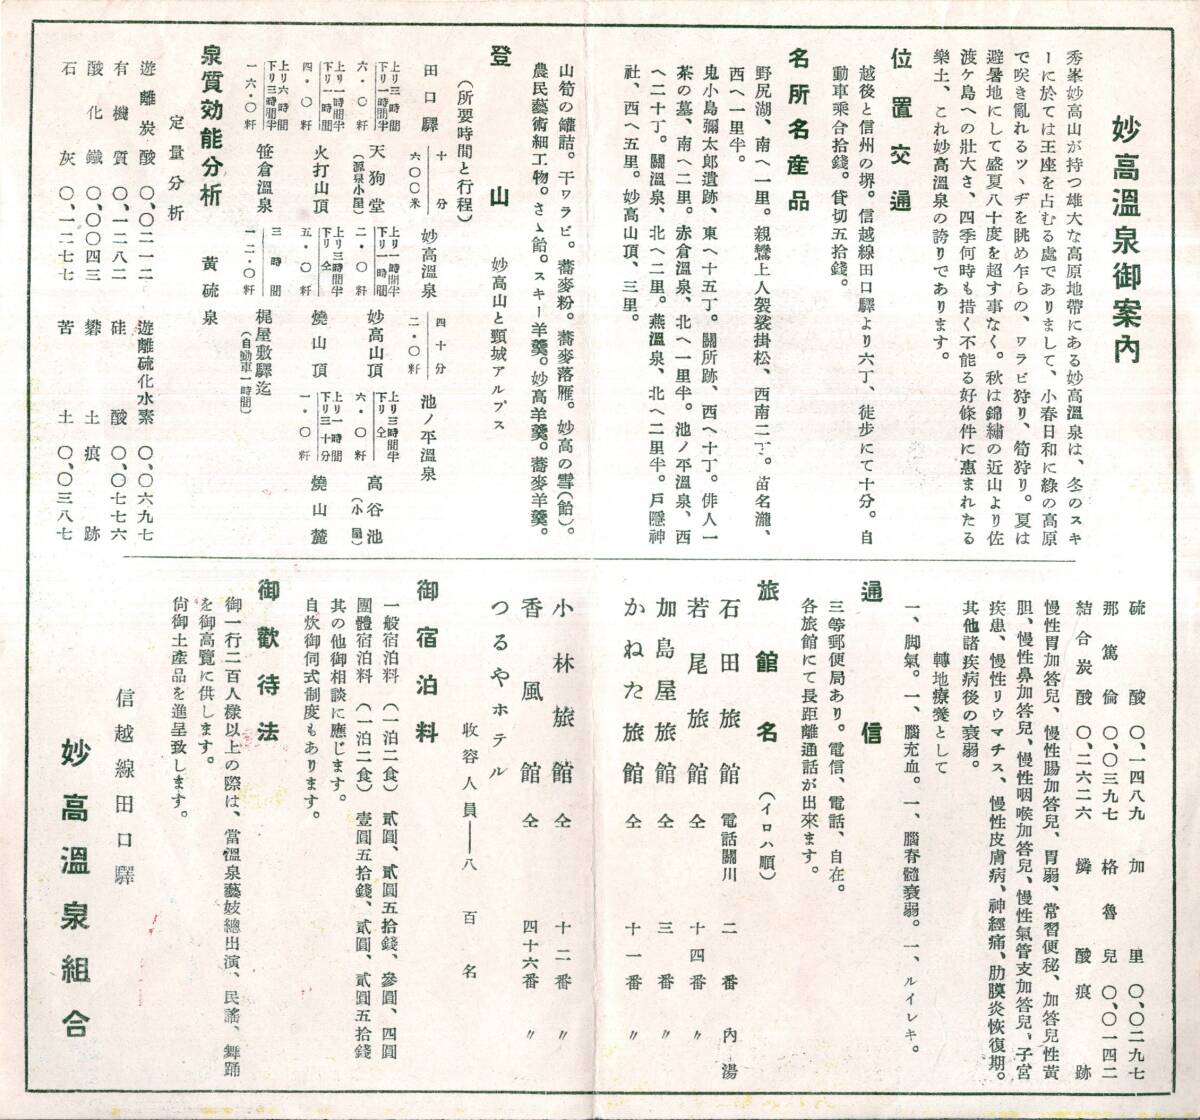 妙高溫泉御案內
秀峯妙高山が持つ雄大な高原地帶にある妙高溫泉は、冬のスキ
ーに於ては王座を占むる處でありまして、小春日和に綠の高原
で咲き亂れるツヽヂを眺め乍らの、ワラビ狩り、筍狩り。夏は
避暑地にして盛夏八十度を超す事なく。秋は錦繡の近山より佐
渡ヶ島への壯大さ、四季何時も措く不能る好條件に惠まれたる
樂土、これ妙高溫泉の誇りであります。
位置交通
越後と信州の堺。信越線田口驛より六丁、徒步にて十分。自
動車乘合拾錢。貸切五拾錢。
名所名産品
野尻湖、南へ一里。親鸞上人袈裟掛松、西南二丁。苗名瀧、
西へ一里半。
鬼小島彌太郎遺跡、東へ十五丁。關所跡、西へ十丁。俳人一
茶の墓、南へ二里。赤倉溫泉、北へ一里半。池ノ平溫泉、西
へ二十丁。關溫泉、北へ二里。燕溫泉、北へ二里半。戶隱神
社、西へ五里。妙高山頂、三里。
山筍の罐詰。干ワラビ。蕎麥粉。蕎麥落雁。妙高の雪(飴)。
農民藝術細工物。さゝ飴。スキー羊羹。妙高羊羹。蕎麥羊羹。
登山 妙高山と頸城アルプス
(所要時間と行程)
田口驛 十分 六〇〇米 妙高溫泉 四十分 二・〇粁 池ノ平溫泉
上リ三時間 下リ一時間半 六・〇粁 天狗堂 (源泉小屋) 上リ一時間半 下リ一時間 二・〇粁 妙高山頂 上リ三時間半 下リ仝 六・〇粁 高谷池 (小屋)
上リ一時間半 下リ一時間 四・〇粁 火打山頂 上リ三時間半 下リ仝 五・〇粁 燒山頂 上リ一時間 下リ三十分 一・〇粁 燒山麓
上リ六時間 下リ三時間半 一六・〇粁 笹倉溫泉 三時間 一二・〇粁 梶屋敷驛迄 (自動車一時間)
泉質効能分析 黃硫泉
定量分析
遊離炭酸 〇、〇二一二 遊離硫化水素 〇、〇六九七
有機質 〇、一二八二 硅酸 〇、〇七七六
酸化鐵 〇、〇〇四三 礬土 痕跡
石灰 〇、一二七七 苦土 〇、〇三八七
硫酸 〇、一四八九 加里 〇、〇二九七
那篤倫 〇、〇三九七 格魯兒 〇、〇一四二
結合炭酸 〇、二六二六 憐酸 痕跡
慢性胃加答兒、慢性腸加答兒、胃弱、常習便秘、加答兒性黃
膽、慢性鼻加答兒、慢性咽喉加答兒、慢性氣管支加答兒、子宮
疾患、慢性リウマチス、慢性皮膚病、神經痛、肋膜炎恢復期。
其他諸疾病後の衰弱。
轉地療養として
一、脚氣。一、腦充血。一、腦脊髓衰弱。一、ルイレキ。
通信
三等郵便局あり。電信、電話、自在。
各旅館にて長距離通話が出來ます。
旅館名 (イロハ順)
石田旅館 電話關川 二番 內湯
若尾旅館 仝 十四番 〃
加島屋旅館 仝 三番 〃
かねた旅館 仝 十一番 〃
小林旅館 仝 十二番 〃
香風館 仝 四十六番 〃
つるやホテル
收容人員――八百名
御宿泊料
一般宿泊料 (一泊二食) 貳圓、貳圓五拾錢、參圓、四圓
團體宿泊料 (一泊二食) 壹圓五拾錢、貳圓、貳圓五拾錢
其の他御相談に應じます。
自炊御伺式制度もあります。
御歡待法
御一行二百人樣以上の際は、當溫泉藝妓總出演、民謠、舞踊
を御高覽に供します。
尙御土產品を進呈致します。
信越線田口驛
妙高溫泉組合